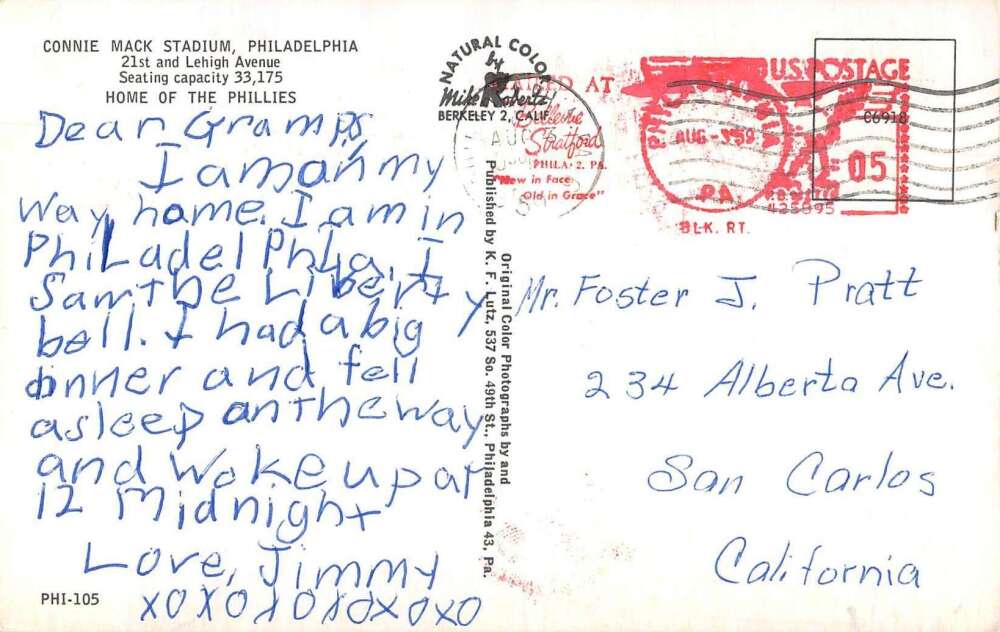 CONNIE MACK STADIUM, PHILADELPHIA
21st and Lehigh Avenue
Seating capacity 33,175
HOME OF THE PHILLIES
Dear Gramps,
I am on my
way home. I am in
PhiLadelPhia. I
Saw the Liberty
bell. I had a big
dinner and fell
asleep on the way
and woke up at
12 Midnight
Love, Jimmy
XOXOXOXOXOXO
PHI-105
NATURAL COLOR
by
Mike Roberts
BERKELEY 2, CALIF.
Original Color Photographs by and
Published by K. F. Lutz, 537 So. 49th St., Philadelphia 43, Pa.
MAILED AT
Bellevue
Stratford
PHILA. 2, PA.
"New in Face
Old in Grace"
AUG -3 '59
PA
U.S. POSTAGE
05
P.B. METER
BLK. RT.
C6918
Mr. Foster J. Pratt
234 Alberta Ave.
San Carlos
California